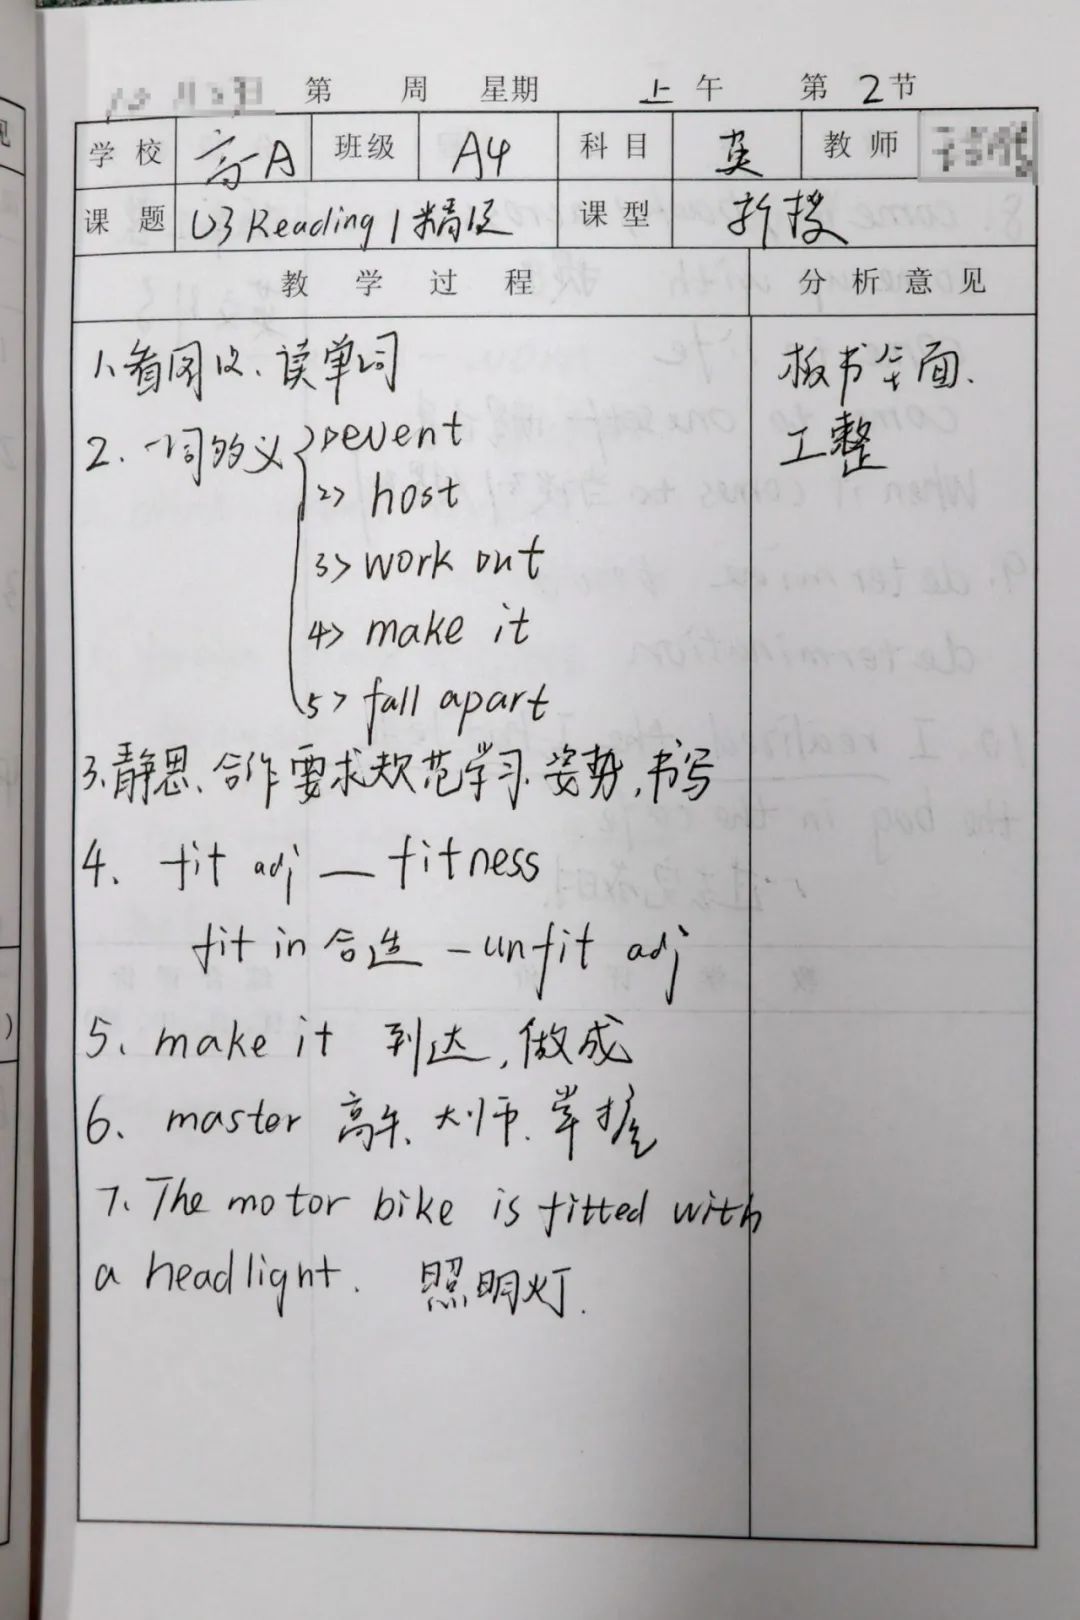 第 周 星期 上午 第 2 节
学校 高一A 班级 A4 科目 英 教师
课题 U3 Reading 1 精读 课型 新授
教学过程 分析意见
1、看图 读单词
2、一词多义 1> event
2> host
3> work out
4> make it
5> fall apart
3、静思、合作要求规范学习姿势,书写
4、fit adj — fitness
fit in 合适 — unfit adj
5、make it 到达,做成
6、master 高手、大师、掌握
7、The motor bike is fitted with
a headlight. 照明灯.
板书全面.
工整